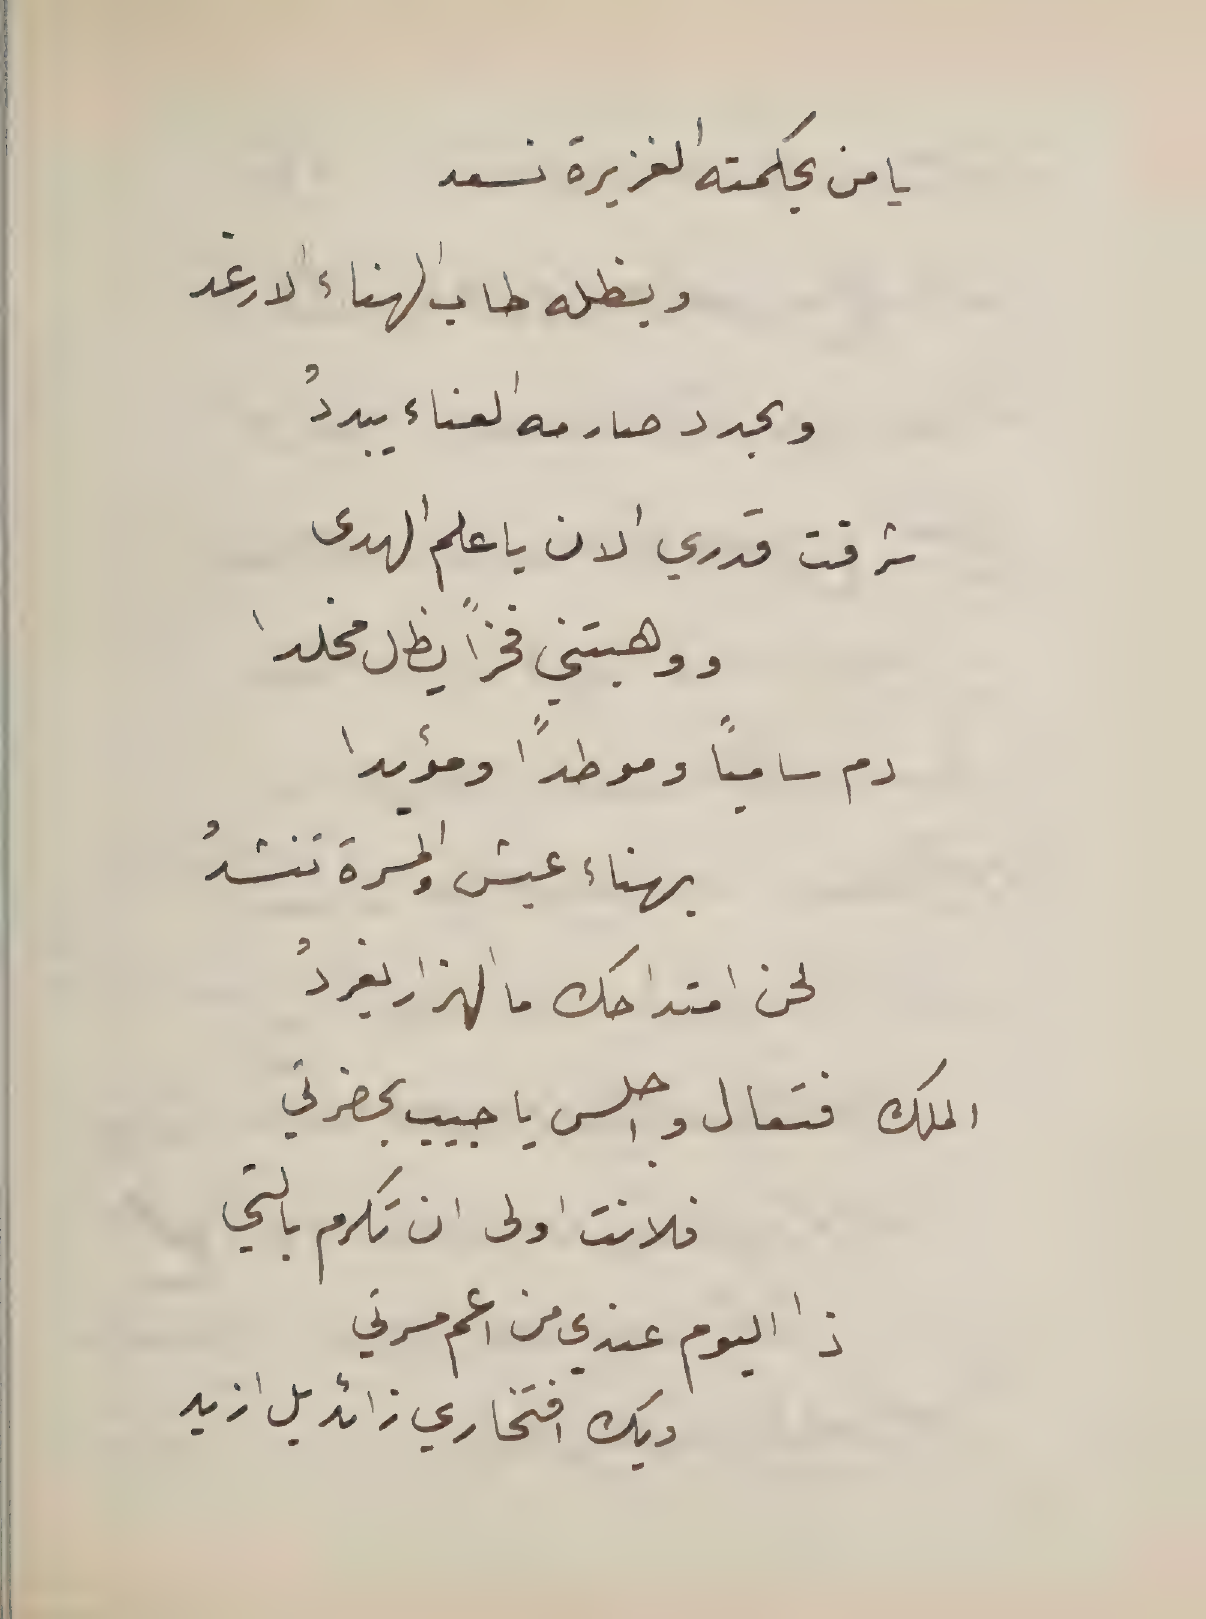 يا من بحكمته الغزيرة نسعد
وبظله طاب الهناء الارغد
وبحدد صارمه العناء يبددُ
شرفت قدري الان يا علم الهدى
ووهبتني فخراً يظل مخلدا
دم سامياً وموطداً ومؤيدا
بهناء عيش والمسرة تنشدُ
لحن امتداحك ما الهزار يغردُ
الملك فتعال واجلس يا حبيب بحضرتي
فلانت اولى ان تكرم بالتي
ذا اليوم عندي من اعم مسرتي
وبك افتخاري زائد بل ازيد